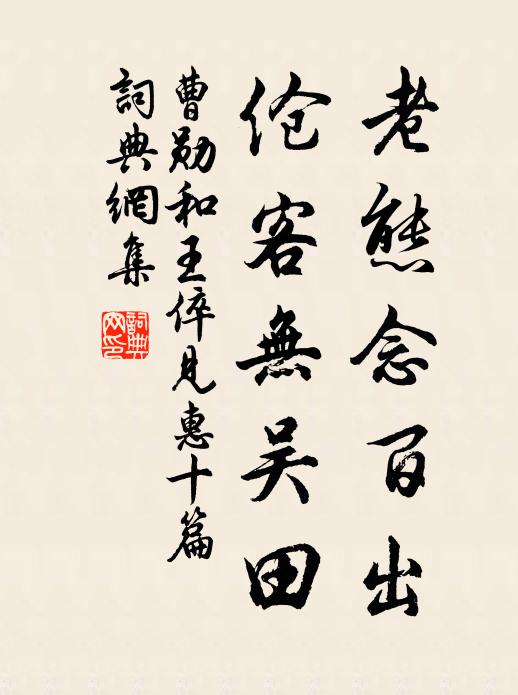 老態念百出
伧客無吴田
曹勛和王倅見惠十篇
詞典網集
詞典网印